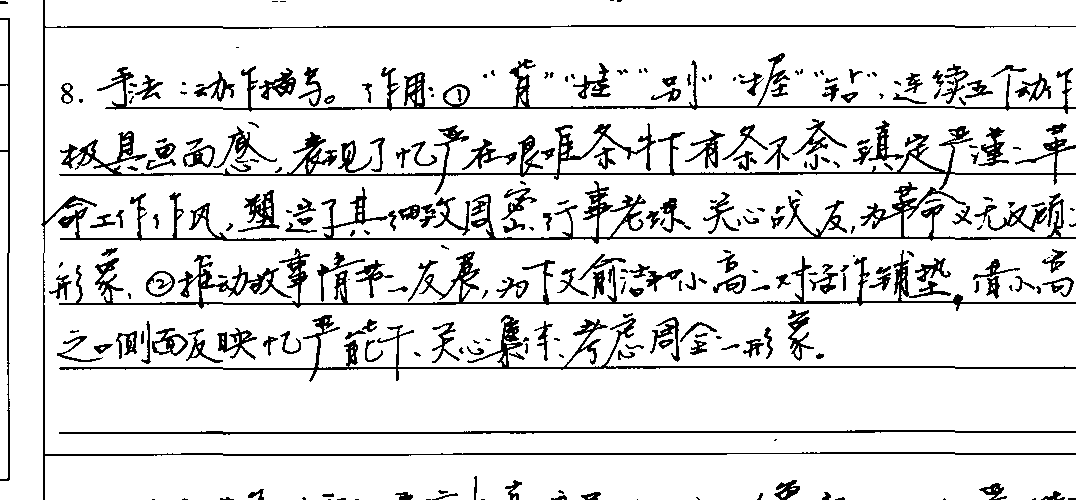 8. 手法：动作描写。作用：①“背”“挂”“别”“握”“钻”，连续五个动作
极具画面感，表现了忆严在艰难条件下有条不紊、镇定严谨的革
命工作作风，塑造了其细致周密、行事老练、关心战友，为革命义无反顾的
形象。②推动故事情节的发展，为下文俞洁和小高的对话作铺垫。借小高
之口侧面反映忆严能干、关心集体、考虑周全的形象。